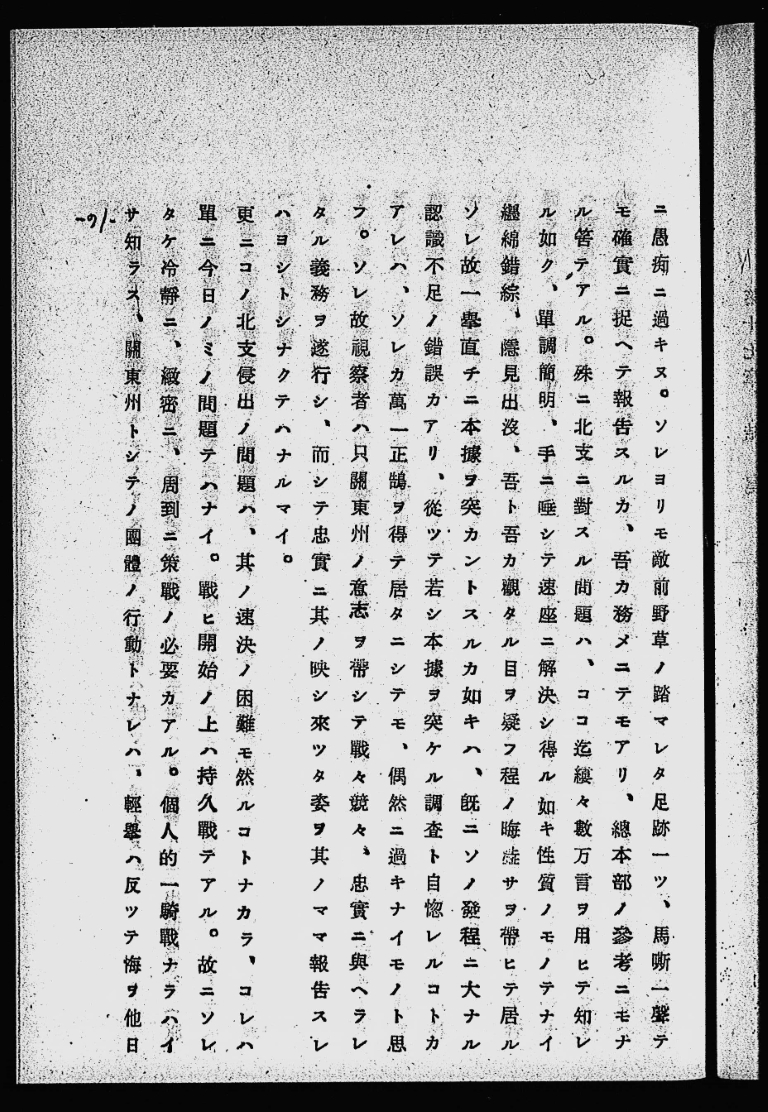 ニ愚痴ニ過キヌ。ソレヨリモ敵前野草ノ踏マレタ足跡一ツ、馬嘶一聲テ
モ確實ニ捉ヘテ報告スルカ、吾カ務メニテモアリ、總本部ノ參考ニモナ
ル筈テアル。殊ニ北支ニ對スル問題ハ、ココ迄縷々數万言ヲ用ヒテ知レ
ル如ク、單調簡明、手ニ唾シテ速座ニ解決シ得ル如キ性質ノモノテナイ
纒綿錯綜、隱見出沒、吾ト吾カ觀タル目ヲ疑フ程ノ晦澁サヲ帶ヒテ居ル
ソレ故一擧直チニ本據ヲ突カントスルカ如キハ、既ニソノ發程ニ大ナル
認識不足ノ錯誤カアリ、從ツテ若シ本據ヲ突ケル調査ト自惚レルコトカ
アレハ、ソレカ萬一正鵠ヲ得テ居タニシテモ、偶然ニ過キナイモノト思
フ。ソレ故視察者ハ只關東州ノ意志ヲ帶シテ戰々兢々、忠實ニ與ヘラレ
タル義務ヲ遂行シ、而シテ忠實ニ其ノ映シ來ツタ姿ヲ其ノママ報告スレ
ハヨシトシナクテハナルマイ。
更ニコノ北支侵出ノ問題ハ、其ノ速決ノ困難モ然ルコトナカラ、コレハ
單ニ今日ノミノ問題テハナイ。戰ヒ開始ノ上ハ持久戰テアル。故ニソレ
タケ冷靜ニ、緻密ニ、周到ニ策戰ノ必要カアル。個人的一騎戰ナラハイ
サ知ラス、關東州トシテノ團體ノ行動トナレハ、輕擧ハ反ツテ悔ヲ他日